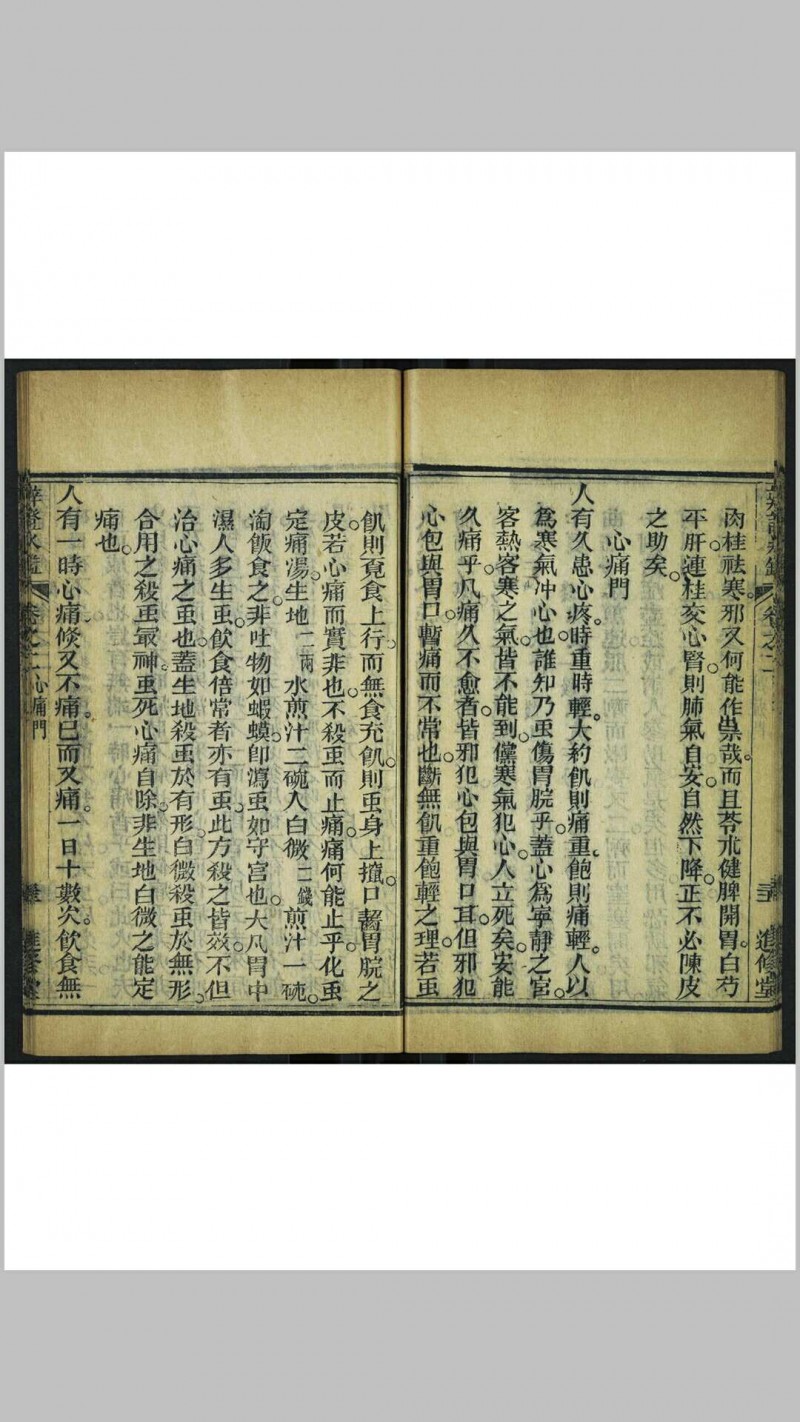 卷之二
進修堂
肉桂祛寒。邪又何能作祟哉。而且苓朮健脾開胃。白芍
平肝。連桂交心腎。則肺氣自安。自然下降。正不必陳皮
之助矣。
心痛門
人有久患心疼。時重時輕。大約飢則痛重。飽則痛輕。人以
爲寒氣冲心也。誰知乃䖝傷胃脘乎。蓋心爲寧靜之官。
客熱客寒之氣。皆不能到。儻寒氣犯心。人立死矣。安能
久痛乎。凡痛久不愈者。皆邪犯心包與胃口耳。但邪犯
心包與胃口。暫痛而不常也。斷無飢重飽輕之理。若䖝
飢則覓食上行。而無食充飢。則䖝身上攛。口齧胃脘之
皮。若心痛而實非也。不殺䖝而止痛。痛何能止乎。化䖝
定痛湯。生地二兩水煎汁二碗入白微二錢煎汁一碗。
淘飯食之。非吐物如蝦蟆。卽瀉䖝如守宮也。大凡胃中
濕人多生䖝。飲食倍常者亦有䖝。此方殺之皆效。不但
治心痛之䖝也。蓋生地殺䖝於有形。白微殺䖝於無形。
合用之殺䖝最神。䖝死心痛自除。非生地白微之能定
痛也。
人有一時心痛。倐又不痛。已而又痛。一日十數次。飲食無
卷之二 心痛門